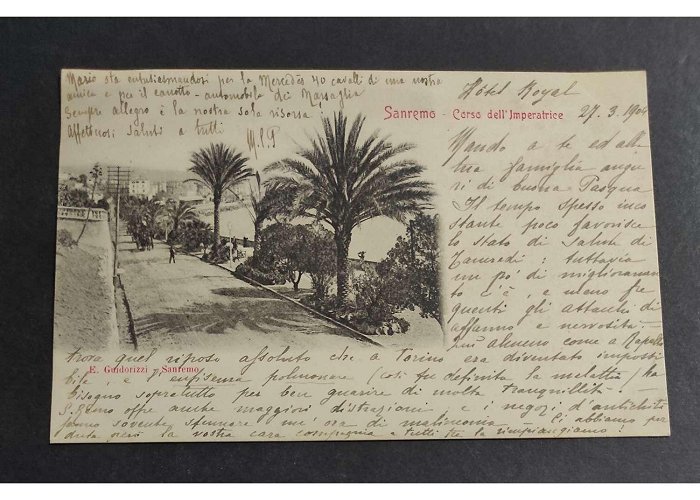 Mario sta entusiasmandosi per la Mercedès 40 cavalli di una nostra
amica e per il canotto-automobile dei Marsaglia
Sempre allegro è la nostra sola risorsa!
Affettuosi saluti a tutti
Sanremo - Corso dell'Imperatrice
Hôtel Royal
27.3.1904
Mando a te ed alla
tua famiglia augu
ri di buona Pasqua
Il tempo spesso inco
stante poco favorisce
lo stato di salute di
: tuttavia
un po' di miglioramen
to c'è, e meno fre
quenti gli attacchi di
affanno e nervosità -
Qui almeno come a Rapallo
trova quel riposo assoluto che a Torino era diventato imposti
bile, e l'enfisema polmonare (così fu definita la malattia) ha
bisogno soprattutto per ben guarire di molta tranquillità -
S. Remo offre anche maggiori distrazioni e i negozi d'antichità
fanno sovente sfumare un'ora di malinconia - Ci abbiamo per
duta però la vostra cara compagnia e tutti la rimpiangiamo!
E. Guidorizzi - Sanremo